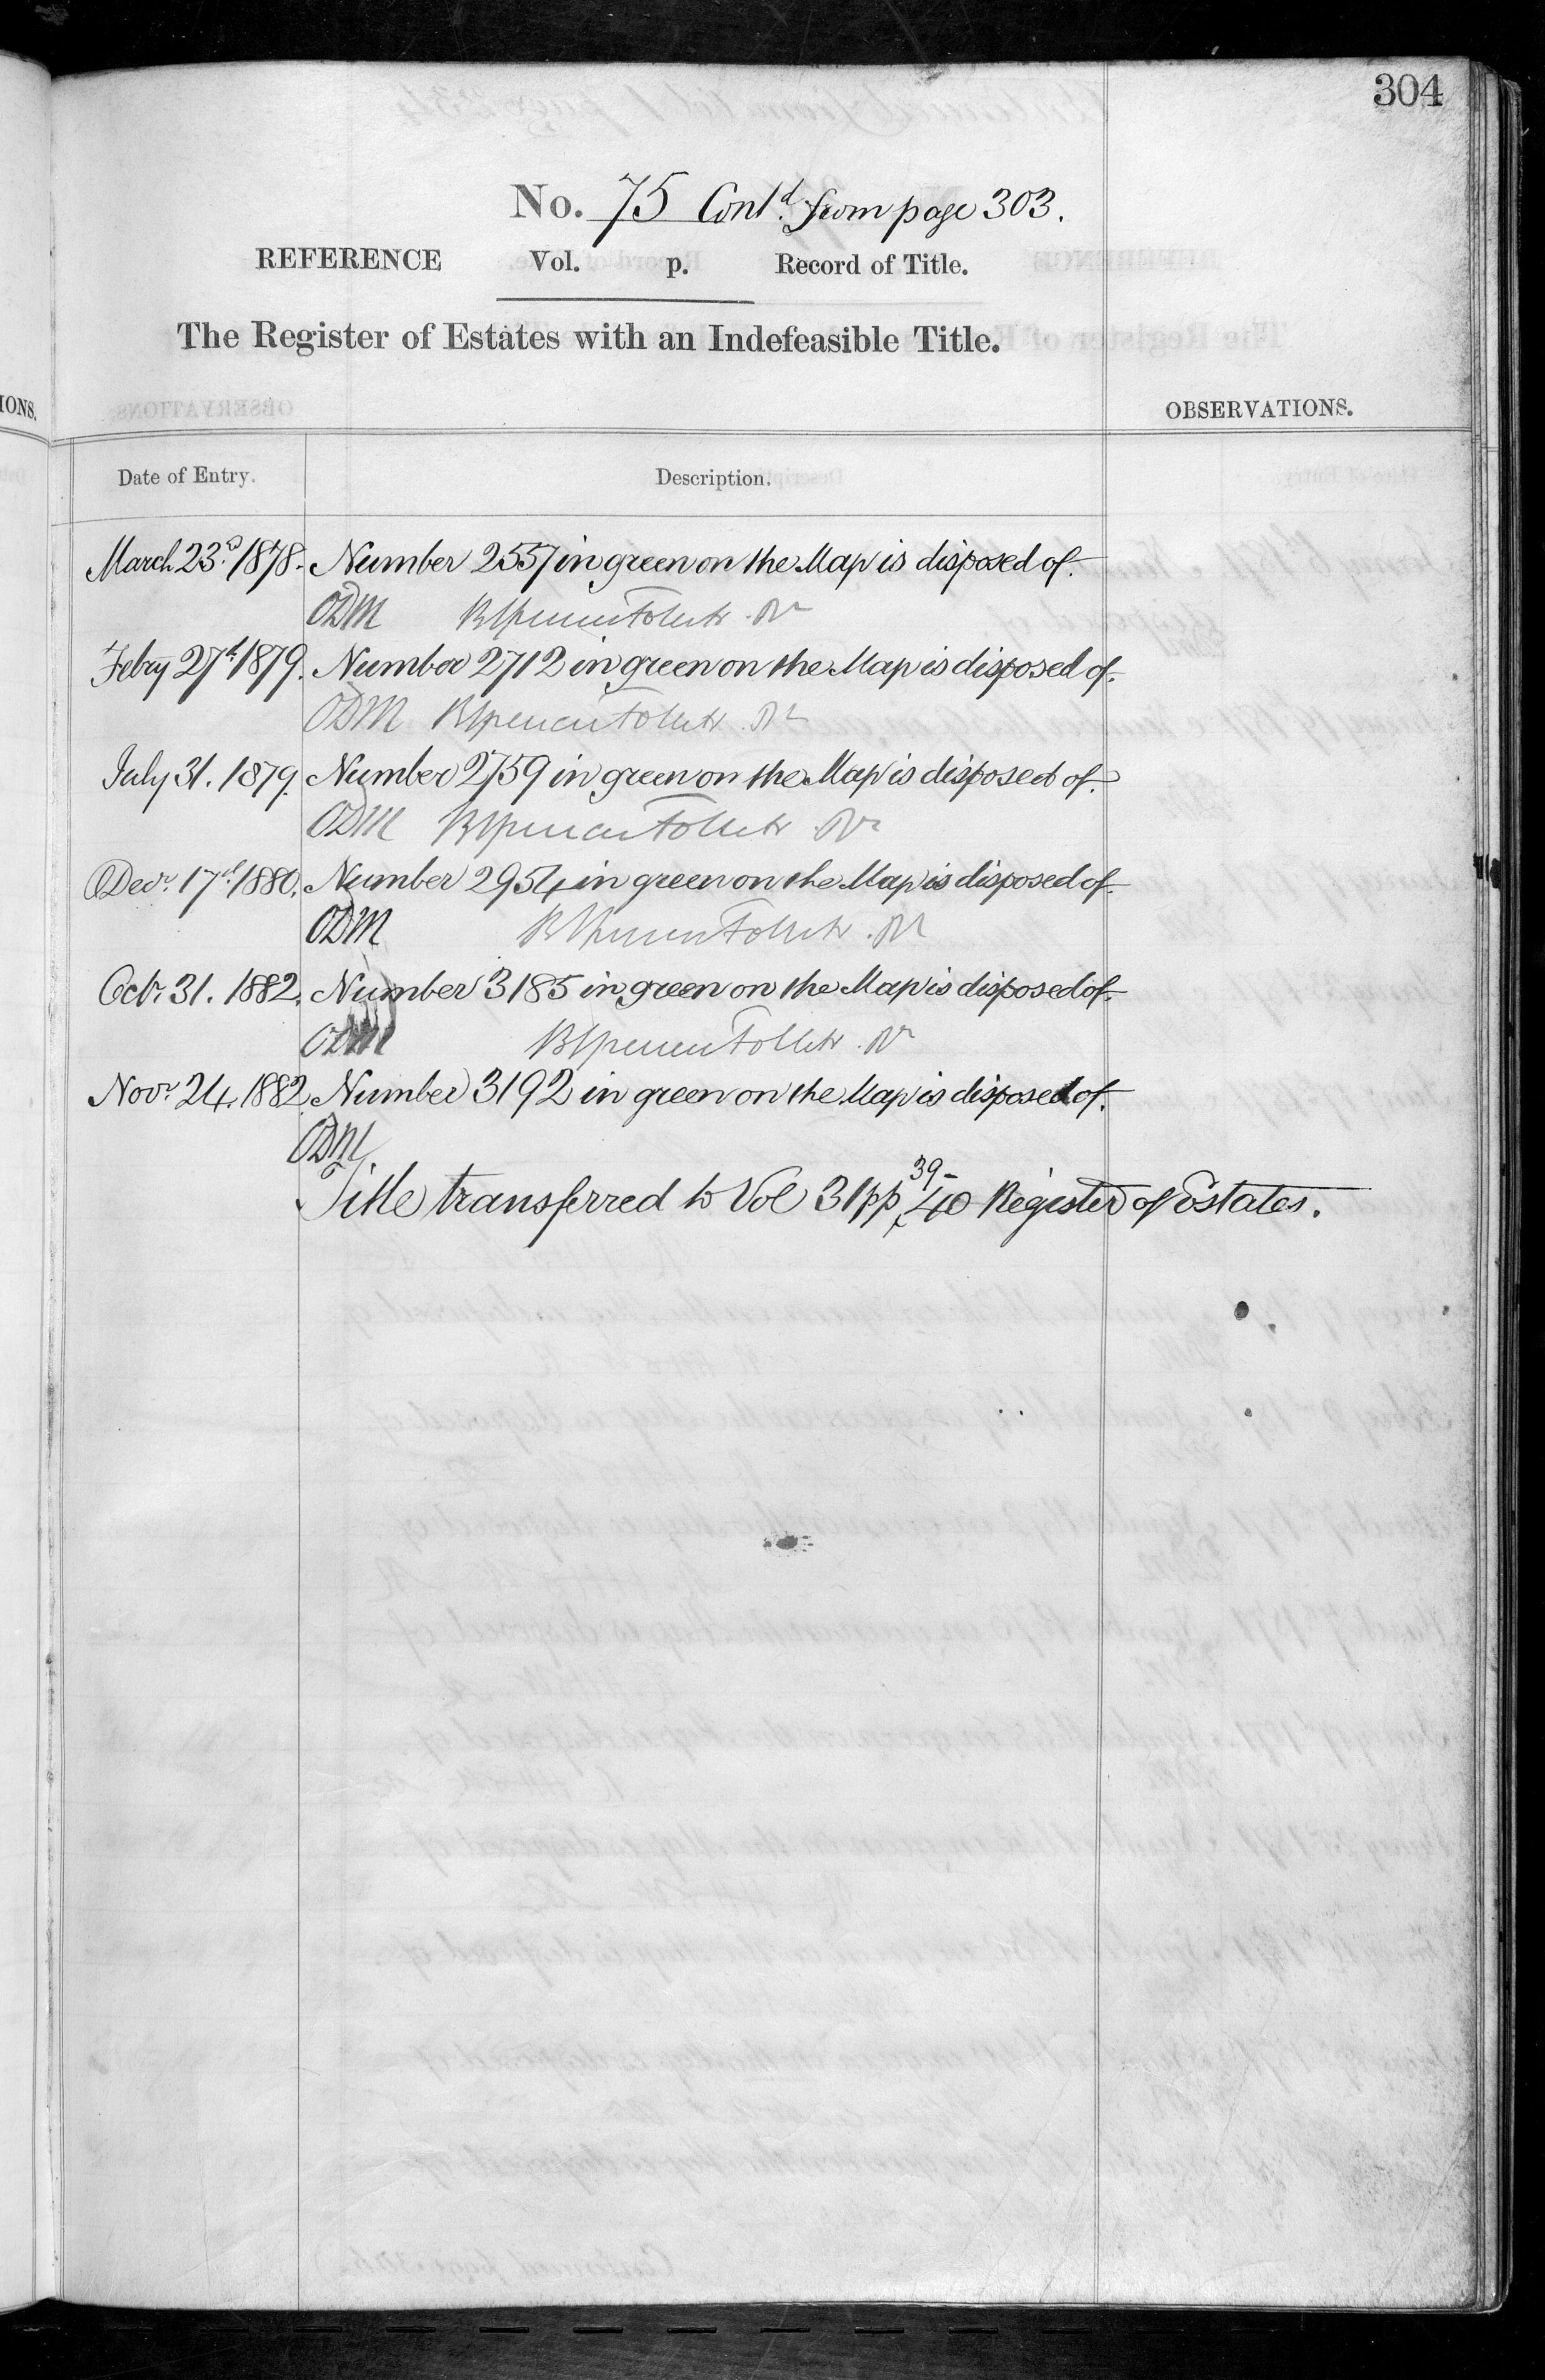 304
No. 75 Cont.d from page 303.
REFERENCE Vol. p. Record of Title.
The Register of Estates with an Indefeasible Title.
IONS.
OBSERVATIONS.
Date of Entry. Description.
March 23.d 1878. Number 2557 in green on the Map is disposed of.
ODM
Febry 27th 1879. Number 2712 in green on the Map is disposed of.
ODM
July 31. 1879. Number 2759 in green on the Map is disposed of.
ODM
Decr. 17th 1880. Number 2954 in green on the Map is disposed of.
ODM
Octr. 31. 1882. Number 3185 in green on the Map is disposed of.
ODM
Novr. 24. 1882. Number 3192 in green on the Map is disposed of.
ODM
Title transferred to Vol 31 pp 39-40 Register of Estates.